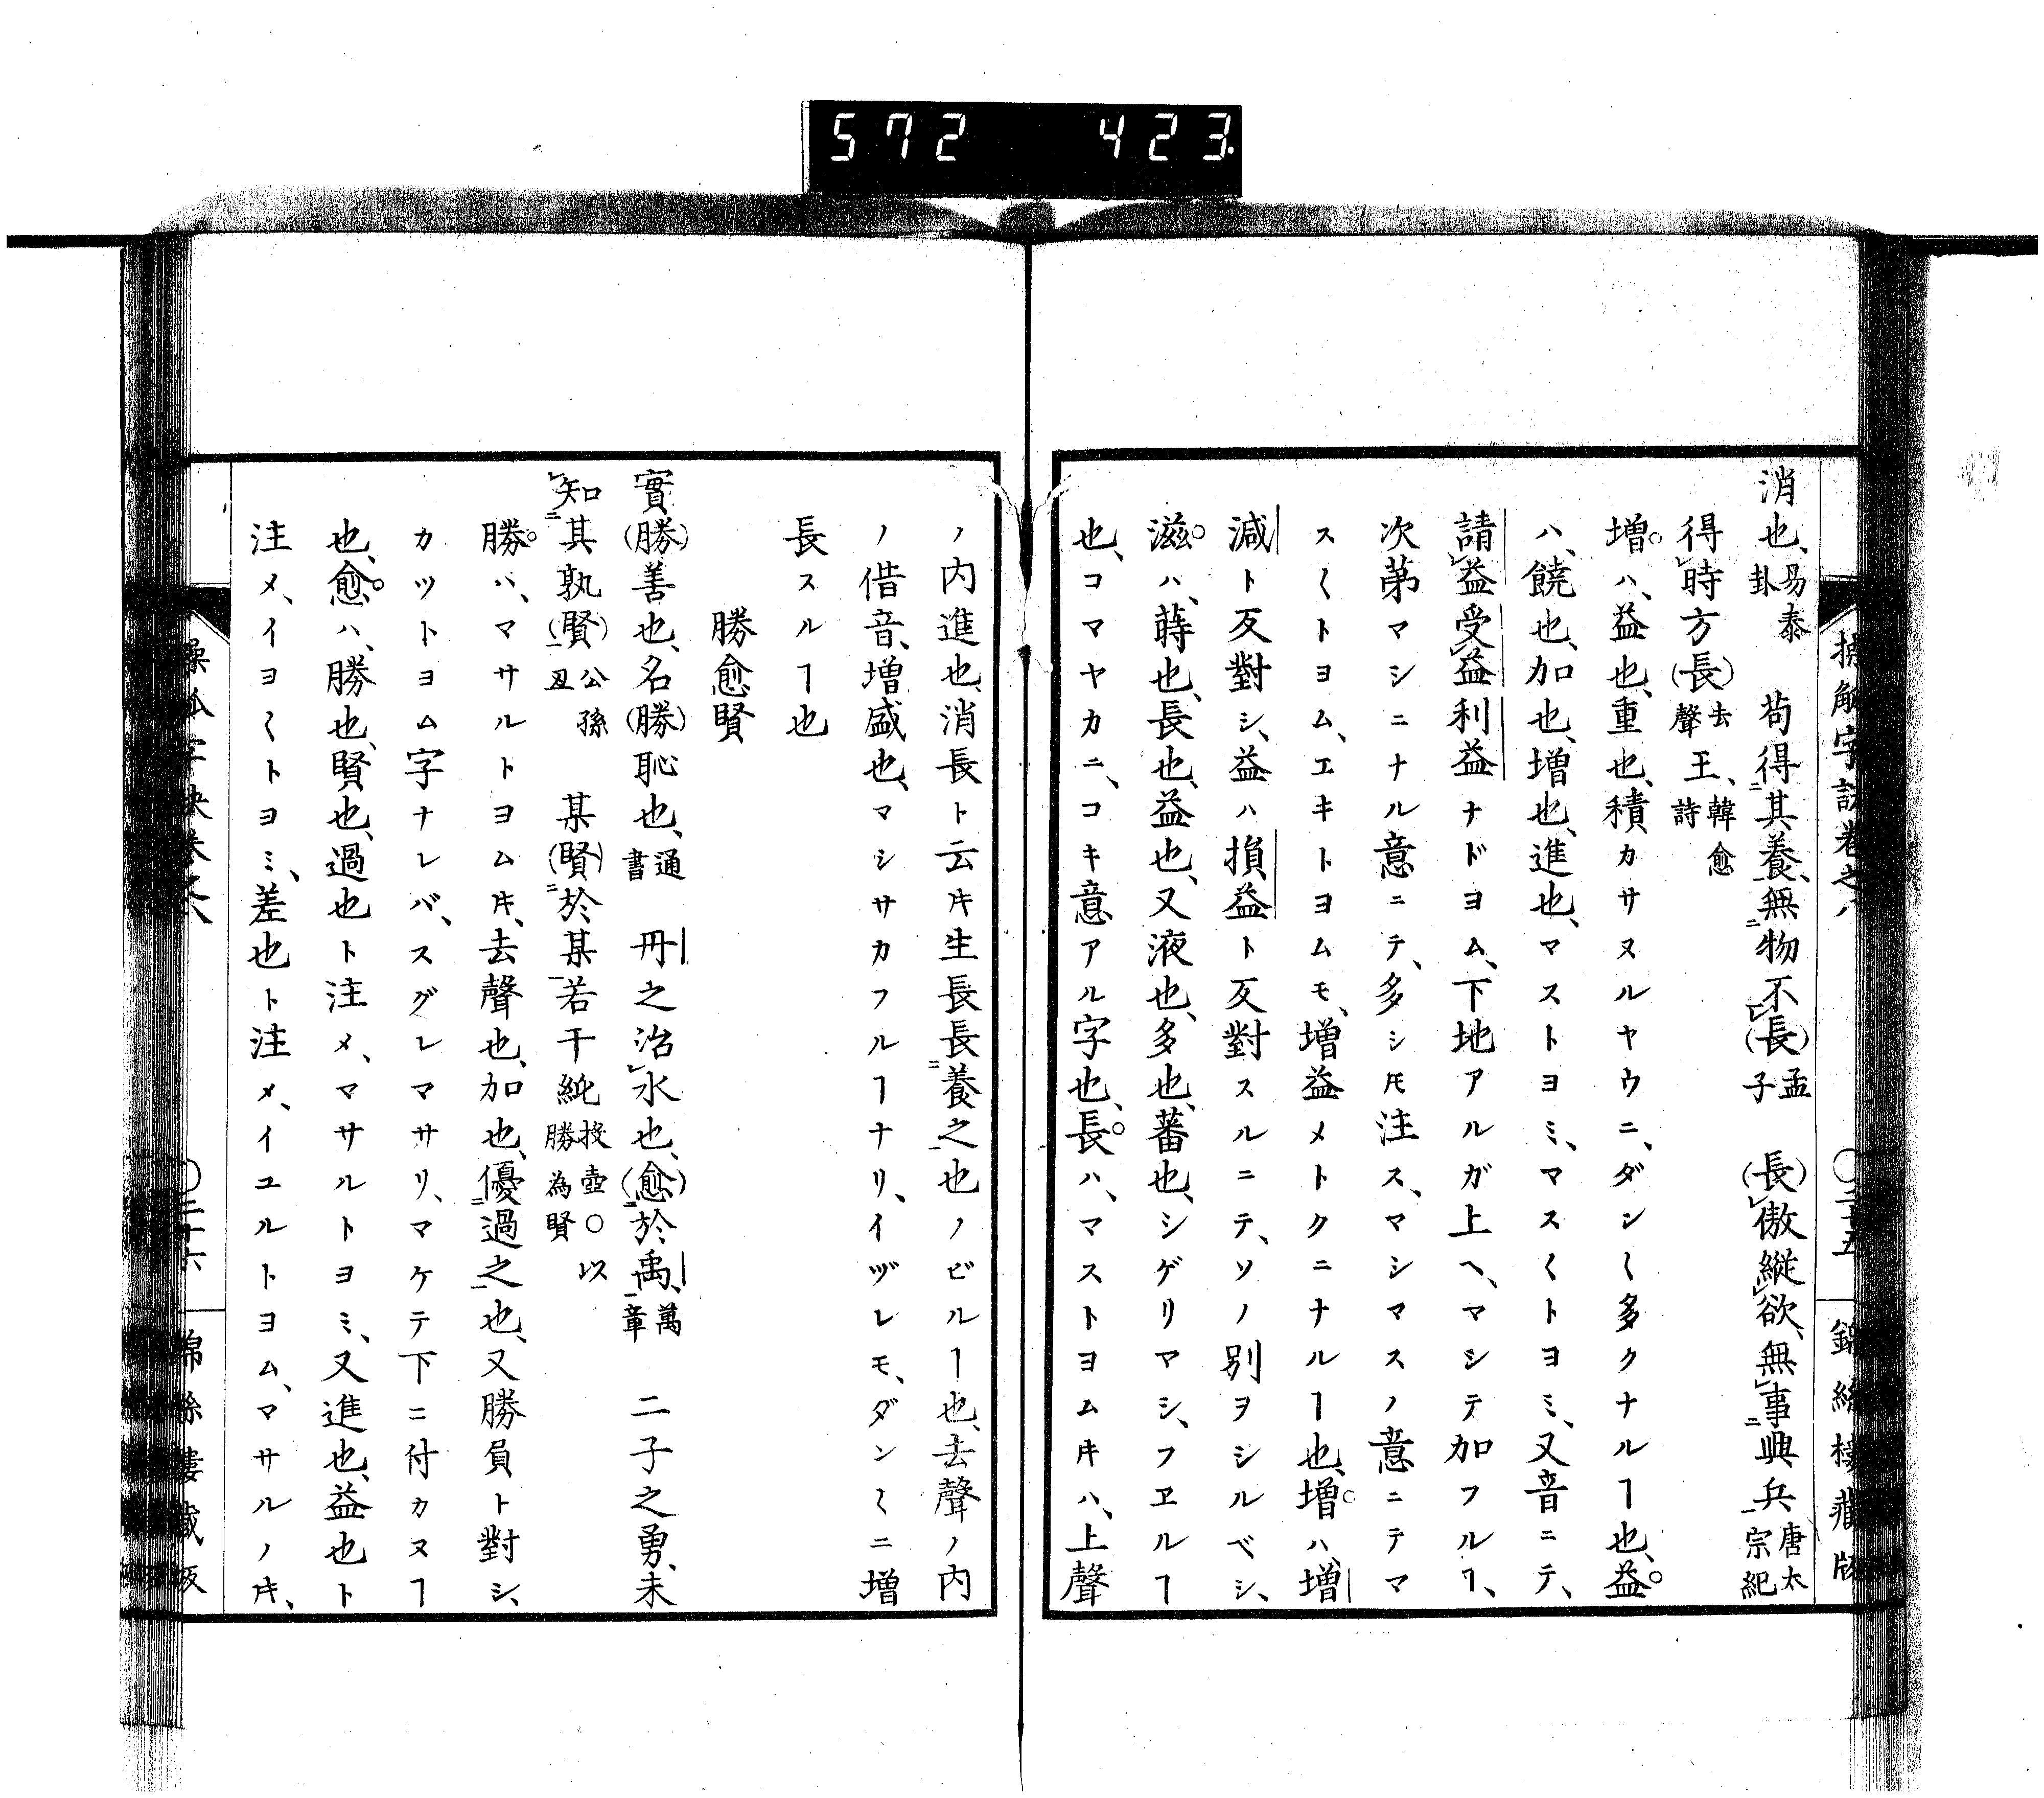 572 423
操觚字訣卷之八 〇二十五 錦絲樓藏版
消也、易泰卦 苟得其養、無物不(長)孟子 (長)傲縱欲、無事興兵唐太宗紀
得時方(長)去聲王、韓愈詩
増ハ、益也、重也、積カサヌルヤウニ、ダン〱多クナルヿ也、益
ハ、饒也、加也、増也、進也、マストヨミ、マス〱トヨミ、又音ニテ、
請益受益利益ナドヨム、下地アルガ上ヘ、マシテ加フルヿ、
次第マシニナル意ニテ、多シ𪜈注ス、マシマスノ意ニテマ
ス〱トヨム、エキトヨムモ、増益メトクニナルヿ也、増ハ、増
減ト反對シ、益ハ損益ト反對スルニテ、ソノ別ヲシルベシ、
滋ハ、蒔也、長也、益也、又液也、多也、蕃也、シゲリマシ、フヱルヿ
也、コマヤカニ、コキ意アル字也、長ハ、マストヨム𪜈ハ、上聲
ノ内進也、消長ト云𪜈生長長養之也ノビルヿ也、去聲ノ内
ノ借音、増盛也、マシサカフルヿナリ、イヅレモ、ダン〱ニ増
長スルヿ也
勝愈賢
實(勝)善也、名(勝)恥也、通書 丹之治水也、(愈)於禹、萬章 二子之勇、未
知其孰(賢)公孫丑 某(賢)於某若干純投壺〇以勝為賢
勝ハ、マサルトヨム𪜈、去聲也、加也、優過之也、又勝負ト對シ、
カツトヨム字ナレバ、スグレマサリ、マケテ下ニ付カヌヿ
也、愈ハ、勝也、賢也、過也ト注メ、マサルトヨミ、又進也、益也ト
注メ、イヨ〱トヨミ、差也ト注メ、イユルトヨム、マサルノ𪜈、
操觚字訣卷之八 〇二十六 錦絲樓藏版